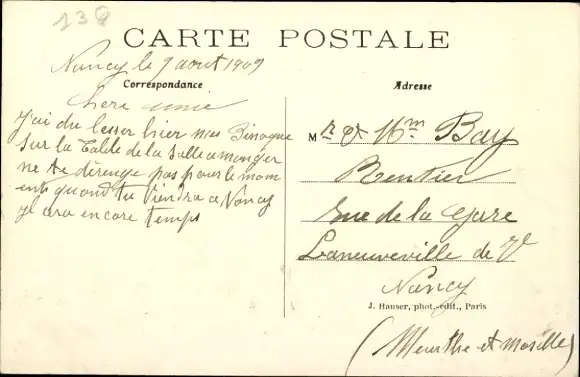 139
CARTE POSTALE
Nancy le 9 aout 1909
Correspondance
Adresse
chere amie
J'ai du lesser hier mes Binoque
sur la table de la salle a manger
ne te dérenge pas pour le mom
ent quand tu viendra a Nancy
yl cera encore temps
M r & Mm Bay
Rentier
Rue de la Gare
Laneuveville de V
Nancy
J. Hauser, phot.-édit., Paris
(Meurthe et Moselle)